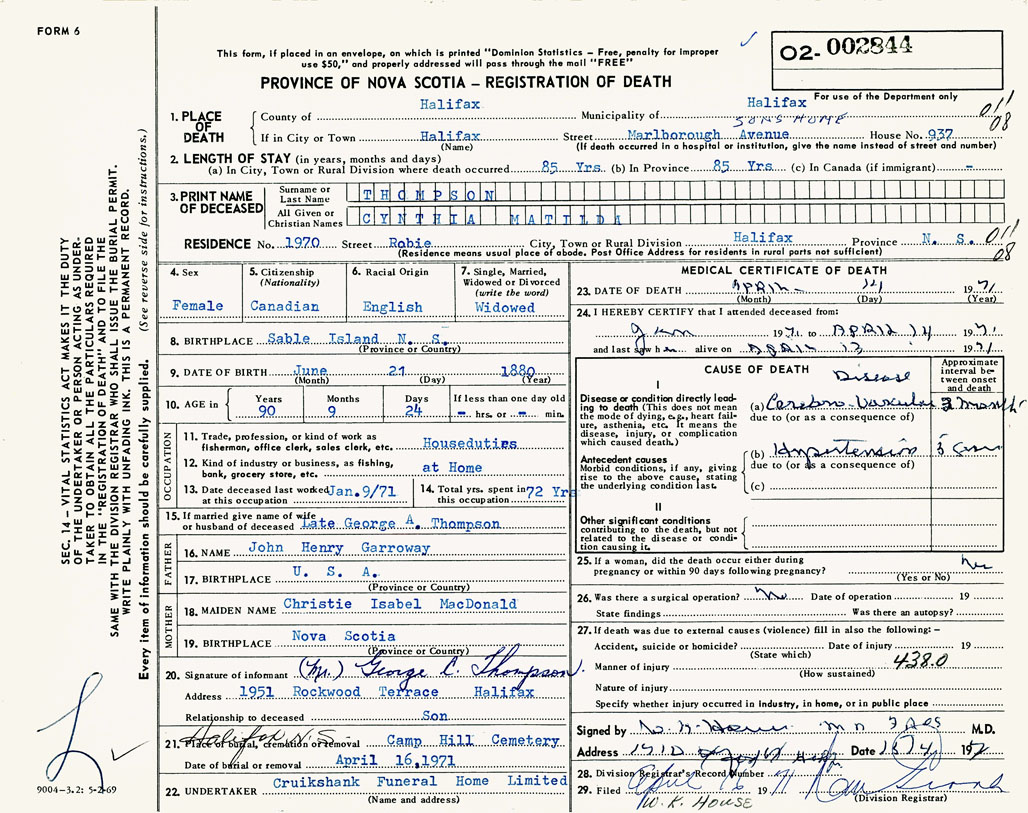 FORM 6
This form, if placed in an envelope, on which is printed "Dominion Statistics – Free, penalty for improper
use $50," and properly addressed will pass through the mail "FREE"
O2- 002844
PROVINCE OF NOVA SCOTIA – REGISTRATION OF DEATH
For use of the Department only
1. PLACE OF DEATH
County of Halifax Municipality of Halifax
SONS HOME
If in City or Town Halifax Street Marlborough Avenue House No. 937
(Name) (If death occurred in a hospital or institution, give the name instead of street and number)
011
08
2. LENGTH OF STAY (in years, months and days)
(a) In City, Town or Rural Division where death occurred 85 Yrs. (b) In Province 85 Yrs. (c) In Canada (if immigrant) –
3. PRINT NAME OF DECEASED
Surname or Last Name THOMPSON
All Given or Christian Names CYNTHIA MATILDA
RESIDENCE No. 1970 Street Robie City, Town or Rural Division Halifax Province N. S.
(Residence means usual place of abode. Post Office Address for residents in rural parts not sufficient)
011
08
4. Sex
Female
5. Citizenship
(Nationality)
Canadian
6. Racial Origin
English
7. Single, Married,
Widowed or Divorced
(write the word)
Widowed
8. BIRTHPLACE Sable Island N. S.
(Province or Country)
9. DATE OF BIRTH June 21 1880
(Month) (Day) (Year)
10. AGE in
Years 90
Months 9
Days 24
If less than one day old
– hrs. or – min.
OCCUPATION
11. Trade, profession, or kind of work as
fisherman, office clerk, sales clerk, etc. Houseduties
12. Kind of industry or business, as fishing,
bank, grocery store, etc. at Home
13. Date deceased last worked
at this occupation Jan.9/71
14. Total yrs. spent in
this occupation 72 Yrs
15. If married give name of wife
or husband of deceased Late George A. Thompson
FATHER
16. NAME John Henry Garroway
17. BIRTHPLACE U. S. A.
(Province or Country)
MOTHER
18. MAIDEN NAME Christie Isabel MacDonald
19. BIRTHPLACE Nova Scotia
(Province or Country)
20. Signature of informant (Mr.) George C. Thompson
Address 1951 Rockwood Terrace Halifax
Relationship to deceased Son
Halifax N.S.
21. Place of burial, cremation or removal Camp Hill Cemetery
Date of burial or removal April 16,1971
22. UNDERTAKER Cruikshank Funeral Home Limited
(Name and address)
MEDICAL CERTIFICATE OF DEATH
23. DATE OF DEATH APRIL 14 1971
(Month) (Day) (Year)
24. I HEREBY CERTIFY that I attended deceased from:
Jan 1971 to APRIL 14 1971
and last saw her alive on APRIL 13 1971
CAUSE OF DEATH
Approximate
interval be-
tween onset
and death
I
Disease
Disease or condition directly lead-
ing to death (This does not mean
the mode of dying, e.g., heart fail-
ure, asthenia, etc. It means the
disease, injury, or complication
which caused death.)
(a) Cerebro-Vascular 3 months
due to (or as a consequence of)
Antecedent causes
Morbid conditions, if any, giving
rise to the above cause, stating
the underlying condition last.
(b) Hypertension
due to (or as a consequence of)
(c)
II
Other significant conditions
contributing to the death, but not
related to the disease or condi-
tion causing it.
25. If a woman, did the death occur either during
pregnancy or within 90 days following pregnancy? No
(Yes or No)
26. Was there a surgical operation? No Date of operation 19
State findings Was there an autopsy?
27. If death was due to external causes (violence) fill in also the following: –
Accident, suicide or homicide? Date of injury 19
(State which)
438.0
Manner of injury
(How sustained)
Nature of injury
Specify whether injury occurred in Industry, in home, or in public place
Signed by M.D.
Address Date
28. Division Registrar's Record Number
29. Filed April 16 1971
(Division Registrar)
W. K. HOUSE
SEC. 14 – VITAL STATISTICS ACT MAKES IT THE DUTY
OF THE UNDERTAKER OR PERSON ACTING AS UNDER-
TAKER TO OBTAIN ALL THE PARTICULARS REQUIRED
IN THE "REGISTRATION OF DEATH" AND TO FILE THE
SAME WITH THE DIVISION REGISTRAR WHO SHALL ISSUE THE BURIAL PERMIT.
WRITE PLAINLY WITH UNFADING INK. THIS IS A PERMANENT RECORD.
Every item of information should be carefully supplied. (See reverse side for instructions.)
9004–3.2: 5-2-69